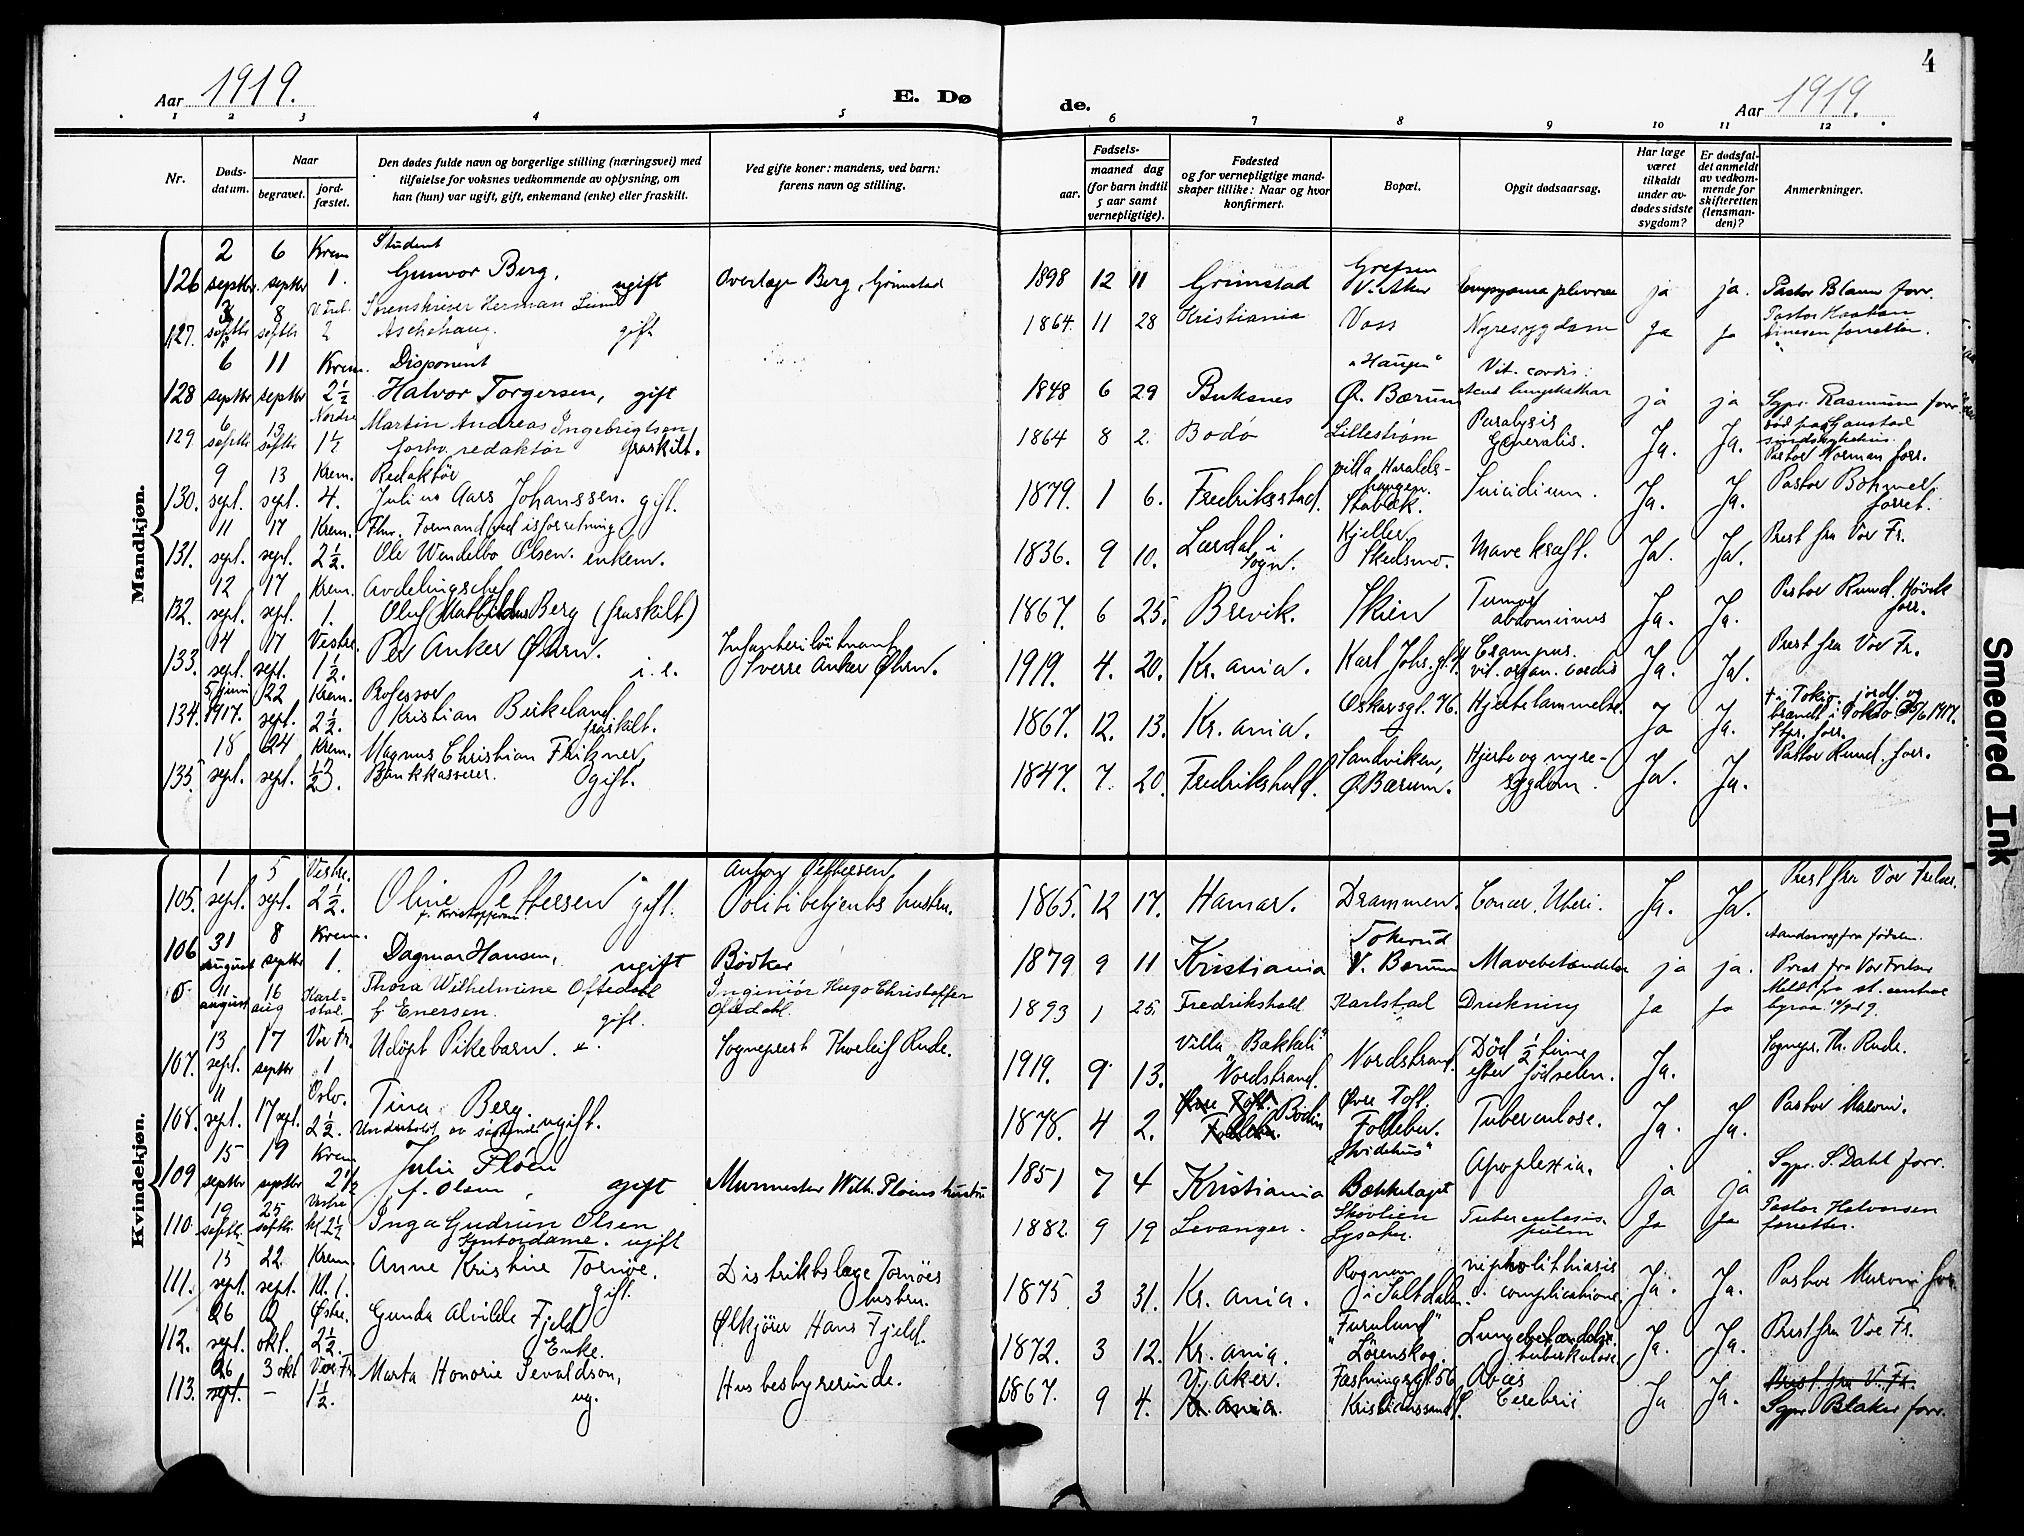 4
Aar 1919.
E. Dø
de.
Aar 1919.
1 2 3 4 5 6 7 8 9 10 11 12
Nr.
Døds-
datum.
Naar
begravet.
jord-
fæstet.
Den dødes fulde navn og borgerlige stilling (næringsvei) med
tilføielse for voksnes vedkommende av oplysning, om
han (hun) var ugift, gift, enkemand (enke) eller fraskilt.
Ved gifte koner: mandens, ved barn:
farens navn og stilling.
Fødsels-
aar.
maaned dag
(for barn indtil
5 aar samt
vernepligtige).
Fødested
og for vernepligtige mand-
skaper tillike: Naar og hvor
konfirmert.
Bopæl.
Opgit dødsaarsag.
Har læge
været
tilkaldt
under av-
dødes sidste
sygdom?
Er dødsfal-
det anmeldt
av vedkom-
mende for
skifteretten
(lensman-
den)?
Anmerkninger.
Mandkjøn.
2 6 Krem Student Grefsen
126 septbr. septbr 1. Gunvor Berg, ugift Overlæge Berg, Grimstad 1898 12 11 Grimstad V. Aker Empyema plevrae ja ja. Pastor Blaum forr.
3 8 Sorenskriver Herman Lund Pastor Haakon
127. septbr septbr 2 Aschehaug. gift 1864. 11 28 Kristiania Voss Nyresygdom Ja Ja forretter.
6 11 Krem. Disponent "Haugen" Vit. cordis.
128 septbr septbr 2½ Halvor Torgersen, gift 1848 6 29 Buksnes Ø. Bærum ja ja Sgpr. Rasmussen forr.
6 13 Nordre Martin Andreas Ingebrigtsen Paralysis ved paa Gaustad
129. septbr septbr 1½ forhv. redaktør fraskilt. 1864 8 2. Bodø Lillestrøm Generalis. Ja. Ja. Pastor Norman forr.
9 13 Krem. Redaktør villa Haralds-
130. sept. sept. 4. Julius Aars Johanssen. gift. 1879. 1 6. Fredriksstad. haugen. Stabæk. Suicidium. Ja. Ja. Pastor Bøhmer forret.
11 17 Krem. Fhv. Formand ved isforretning Kjeller,
131. sept. sept. 2½. Ole Wendelbo Olsen. enkem. 1836. 9 10. Lærdal i Sogn. Skedsmo. Mavekræft. Ja. Ja. Prest fra Vor Fr.
12 17 Krem. Avdelingschef
132. sept. sept. 1. Oluf Mathildus Berg (fraskilt) 1867. 6 25. Brevik. Skien Tumor abdominus Ja. Ja. Pastor Rund. Høvik forr.
14 17 Vestre. Infanteriløitnant
133. sept. sept. 1½. Per Anker Øhrn. i.e. Sverre Anker Øhrn. 1919. 4. 20. Kr.ania. Karl Johs.gt. 4 Crampus. vit. organ. cordis Ja. Ja. Prest fra Vor Fr.
5 juni 22 Krem. Professor
134. 1917. sept. 2½. Kristian Birkeland fraskilt. 1867. 12. 13. Kr.ania. Oskarsgt. 76. Hjertelammelse. Ja Ja. † i Tokio. jordf. og brændt i Tokio 25/6 1917. Sgpr. forr.
18 24 Krem. Magnus Christian Fritzner,
135. sept. sept. ½3. Bankkasserer. gift. 1847. 7. 20. Fredrikshald. Sandviken, Ø. Bærum. Hjerte og nyre- sygdom. Ja. Ja. Pastor Rund. forr.
Kvindekjøn.
1 5 Vestre. Anton Pettersen,
105. sept. sept. 2½. Oline Pettersen gift. f. Kristoffersen Politibetjents hustru. 1865. 12 17. Hamar. Drammen. Cancer. Uteri. Ja. Ja. Prest fra Vor Frelser.
31 8 Krem. Tokerud Aandssvag fra fødslen.
106 august septbr 1. Dagmar Hansen, ugift Bødker 1879 9 11 Kristiania V. Bærum Mavebetændelse ja ja. Prest fra Vor Frelser
11 16 Karl- Thora Wilhelmine Oftedahl Ingeniør Hugo Christoffer Meldt fra st. central
0 august aug stad. f. Enersen. gift. Oftedahl. 1893 1 25. Fredrikshald Karlstad Drukning Ja Ja
13 17 Vor Fr.
107. sept. septbr 1 Udøpt Pikebarn. Sogneprest Thorleif Rude. 1919. 9. 13. Villa "Bakkeli" Nordstrand. Nordstrand. Død ½ time efter fødselen. Ja. Sognepr. Th. Rude.
11 Oslo.
108. sept. 17 sept. 2½. Tina Berg. Underholdt av søskende ugift. 1878. 4 2. Bodin Øvre Toft. Follebu. Tuberculose. Ja. Ja. Pastor Maroni.
15 19 Krem "Hvidehus"
109 septbr septbr 2½ Julie Pløen f. Olsen, gift Murmester Wilh. Pløens hustru 1851 7 4 Kristiania Bækkelaget Apoplexia. ja ja Sgpr. S. Dahl forr.
19 25 Vestre
110. septbr. septbr. kl 2½ Inga Gudrun Olsen Kontordame. ugift 1882. 9 19 Levanger. Skovlien Lysaker. Tuberculosis pulm Ja Ja Pastor Halvorsen forretter.
15 22 Krem.
111. sept. sept. Kl. 1. Anne Kristine Tornøe. gift. Distriktslæge Tornøes hustru. 1875 3 31. Kr.ania. Rognan i Saltdalen. nepholithiasis c. complicationes. Ja. Ja. Pastor Maroni forr
26 2 Østre.
112. sept. okt. 2½. Gunda Alvilde Fjeld Enke. Ølkjører Hans Fjeld. 1872. 3 12. Kr.ania. "Furulund" Lørenskog. Lungebetændelse tuberkuløse. Ja. Ja. Prest fra Vor Fr.
26 3 okt Vor Fr.
113. sept. – 1½. Marta Honorie Sevaldson, ug. Husbestyrerinde. 1867. 9 4. V. Aker. Kr.ania. Fæstningsgt. 56 Kristianssund S. Abces Cerebrii Ja Ja. Prest fra V. Fr. Sgpr. Blaker forr.
Smeared Ink